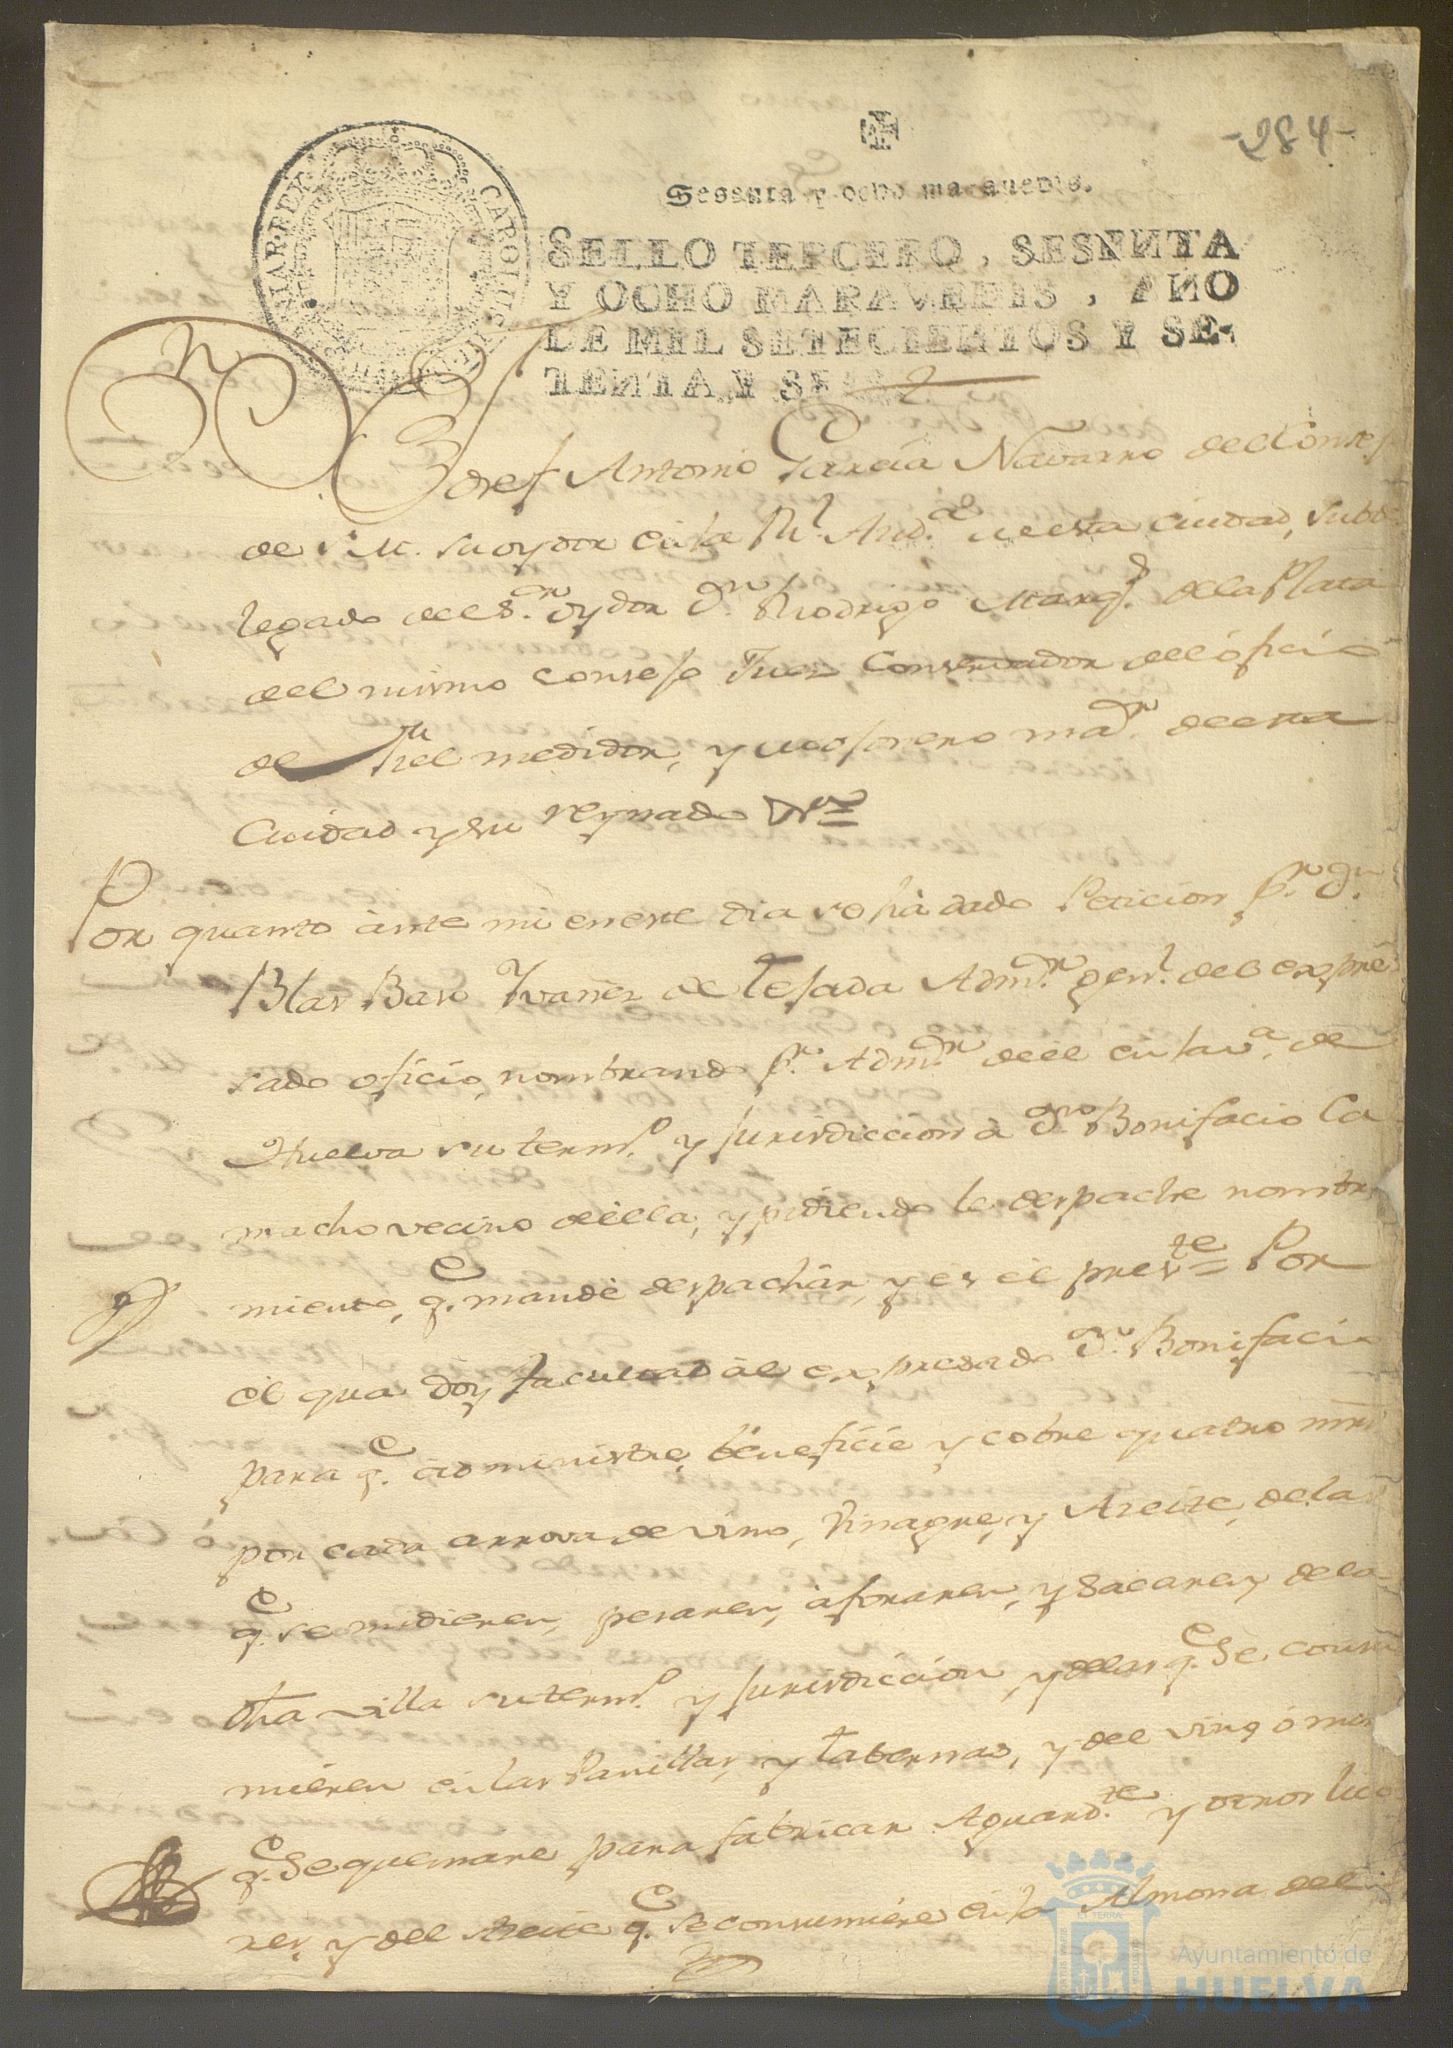 -284-
Sesenta y ocho maravedis.
SELLO TERCERO, SESENTA
Y OCHO MARAVEDIS, AÑO
DE MIL SETECIENTOS Y SE-
TENTA Y SEIS
CAROLUS III HISPANIAR. REX
Dn Josef Antonio Garcia Navarro del Consejo
de S.M. su oydor en la Rl. Auda. de esta ciudad, subde
legado del Sor. oydor Dn. Rodrigo Marqs. de la Plata
del mismo consejo Juez Conservador del óficio
de fiel medidor, y mojonero maor. de esta
Ciudad y su reynado
Por quanto ànte mi en este dia se hà dado Peticion pr. Dn.
Blas Baso Yvañez de Tejada Admor. genl. del expre
sado oficio, nombrando pr. Admor. de él en la va. de
Huelva su termo. y jurisdiccion à Dn. Bonifacio Ca
macho vecino de ella, y pidiendo le despache nombra
miento, qe. mandè despachàr, y es el preste = Por
el qua doy facultad àl expresado Dn. Bonifacio
para qe. administre, beneficie y cobre quatro mrs
por cada arrova de vino, Vinagre, y Aceite, de las
qe. se midieren, pesaren, àforaren, y sacaren, de la
dha villa su termo. y jurisdiccion, y de las qe. se consu
mieren en las Panillas, y tabernas, y del vino ó mos
qe. se quemare para fabricar Aguardte. y otros lico
res, y del Aceite qe. se consumière en la Almona del
Ayuntamiento de
HUELVA